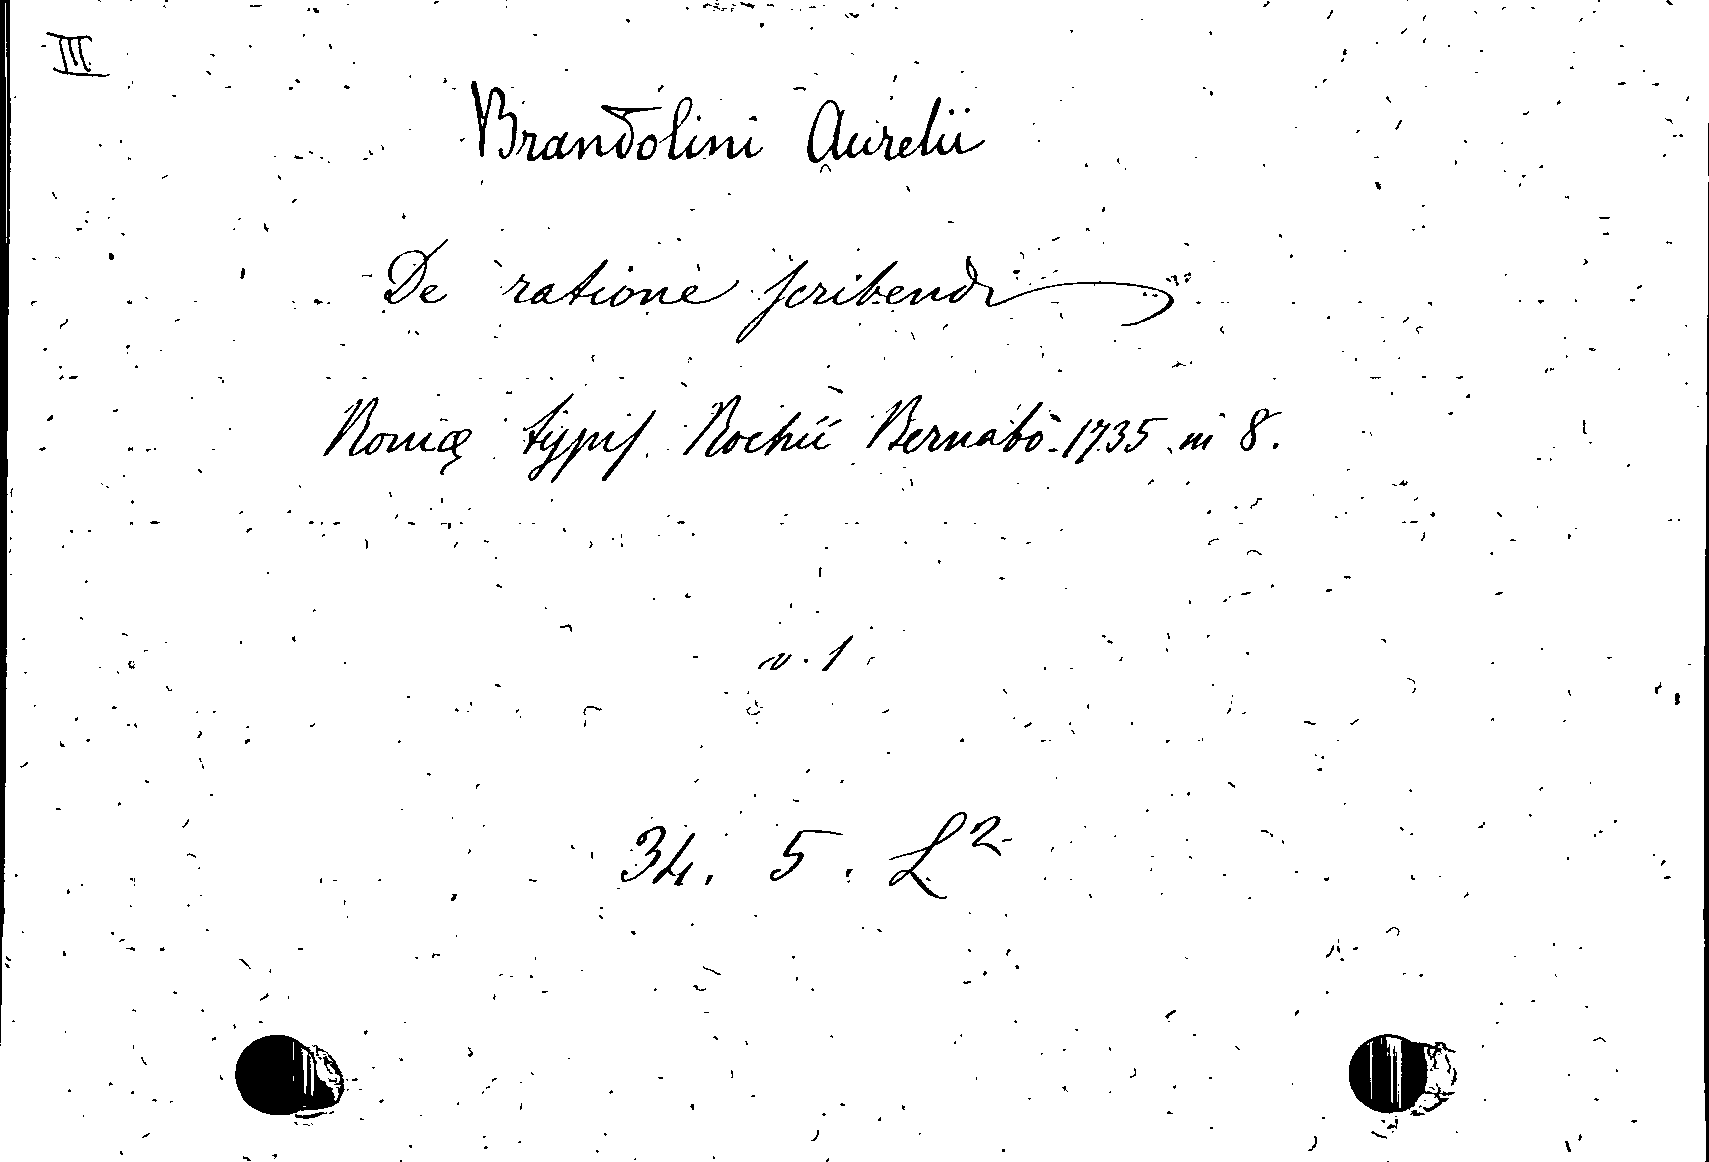 III
Brandolini Aurelii
De ratione scribendi
Romæ typis Rochii Bernabò 1735 in 8.
v. 1
34. 5. L²